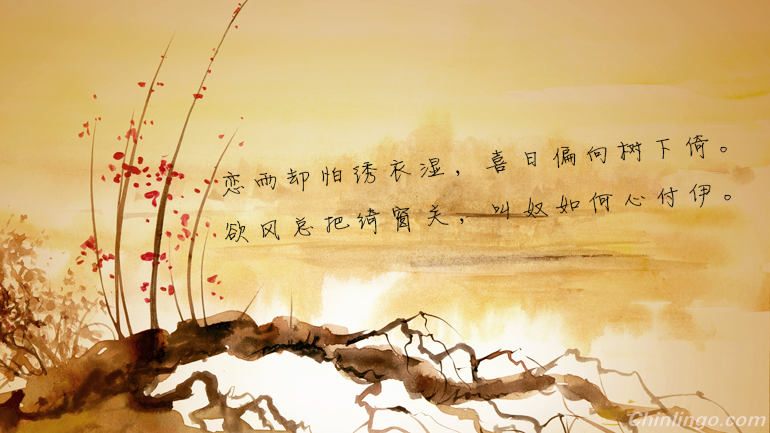 恋雨却怕绣衣湿，喜日偏向树下倚。
欲风总把绮窗关，叫奴如何心付伊。
Chinlingo.com